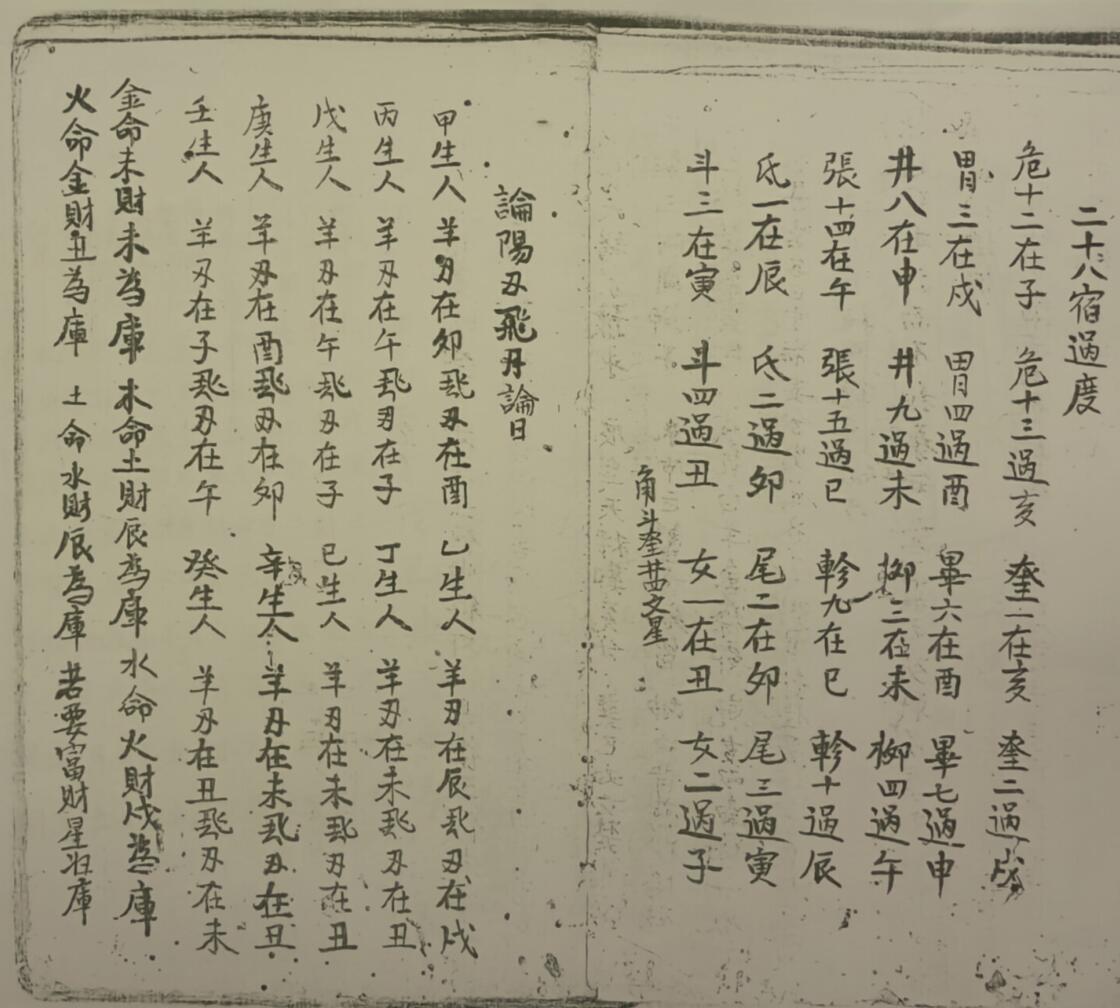 二十八宿過度
危十二在子 危十三過亥 奎一在亥 奎二過戌
胃三在戍 胃四過酉 畢六在酉 畢七過申
井八在申 井九過未 柳三在未 柳四過午
張十四在午 張十五過巳 軫九在巳 軫十過辰
氐一在辰 氐二過卯 尾二在卯 尾三過寅
斗三在寅 斗四過丑 女一在丑 女二過子
角斗奎井四文星
論陽刃飛刃論日
甲生人 羊刃在卯飛刃在酉 乙生人 羊刃在辰飛刃在戌
丙生人 羊刃在午飛刃在子 丁生人 羊刃在未飛刃在丑
戊生人 羊刃在午飛刃在子 己生人 羊刃在未飛刃在丑
庚生人 羊刃在酉飛刃在卯 辛生人 羊刃在未飛刃在丑
壬生人 羊刃在子飛刃在午 癸生人 羊刃在丑飛刃在未
金命木財未為庫 木命土財辰為庫 水命火財戌為庫
火命金財丑為庫 土命水財辰為庫 若要富財星归庫